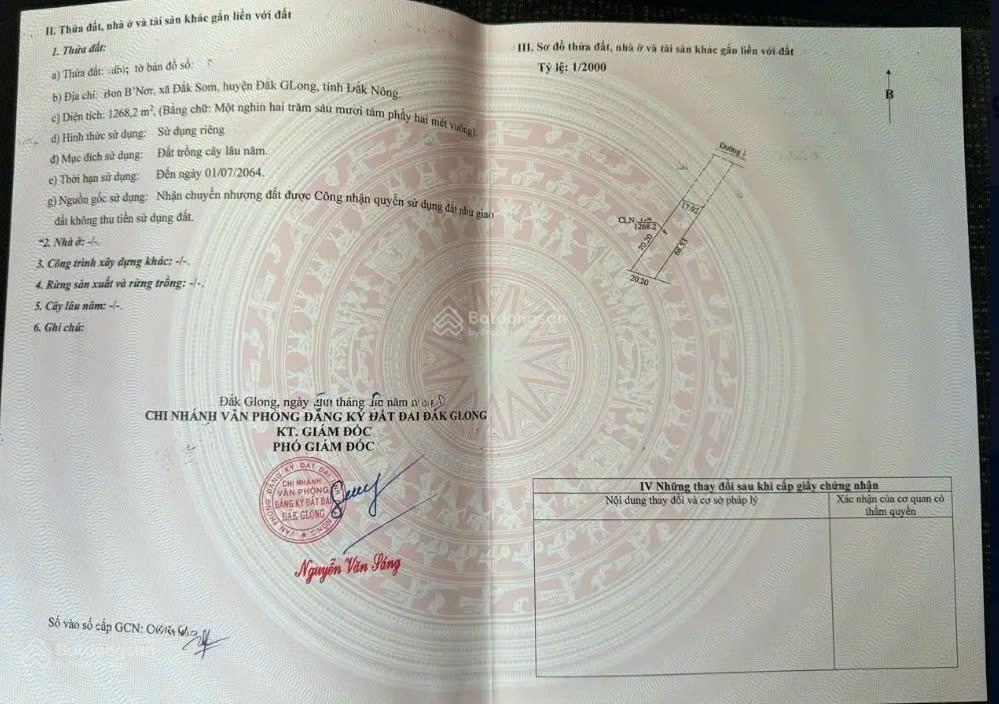 II. Thửa đất, nhà ở và tài sản khác gắn liền với đất
1. Thửa đất:
a) Thửa đất: tờ bản đồ số:
b) Địa chỉ: Bon B'Nơr, xã Đắk Som, huyện Đắk GLong, tỉnh Đắk Nông.
c) Diện tích: 1268,2 m², (Bằng chữ: Một nghìn hai trăm sáu mươi tám phẩy hai mét vuông).
d) Hình thức sử dụng: Sử dụng riêng
đ) Mục đích sử dụng: Đất trồng cây lâu năm.
e) Thời hạn sử dụng: Đến ngày 01/07/2064.
g) Nguồn gốc sử dụng: Nhận chuyển nhượng đất được Công nhận quyền sử dụng đất như giao
đất không thu tiền sử dụng đất.
"2. Nhà ở: -/-.
3. Công trình xây dựng khác: -/-.
4. Rừng sản xuất và rừng trồng: -/-.
5. Cây lâu năm: -/-.
6. Ghi chú:
Đắk Glong, ngày tháng năm
CHI NHÁNH VĂN PHÒNG ĐĂNG KÝ ĐẤT ĐAI ĐẮK GLONG
KT. GIÁM ĐỐC
PHÓ GIÁM ĐỐC
CHI NHÁNH
VĂN PHÒNG
ĐĂNG KÝ ĐẤT ĐAI
ĐẮK GLONG
Nguyễn Văn Sáng
Số vào sổ cấp GCN:
III. Sơ đồ thửa đất, nhà ở và tài sản khác gắn liền với đất
Tỷ lệ: 1/2000
B
Đường
17.92
CLN
1268.2
70.20
68.53
20.20
Batdongsan
by PropertyGuru
IV Những thay đổi sau khi cấp giấy chứng nhận
Nội dung thay đổi và cơ sở pháp lý
Xác nhận của cơ quan có
thẩm quyền
Batdongsan